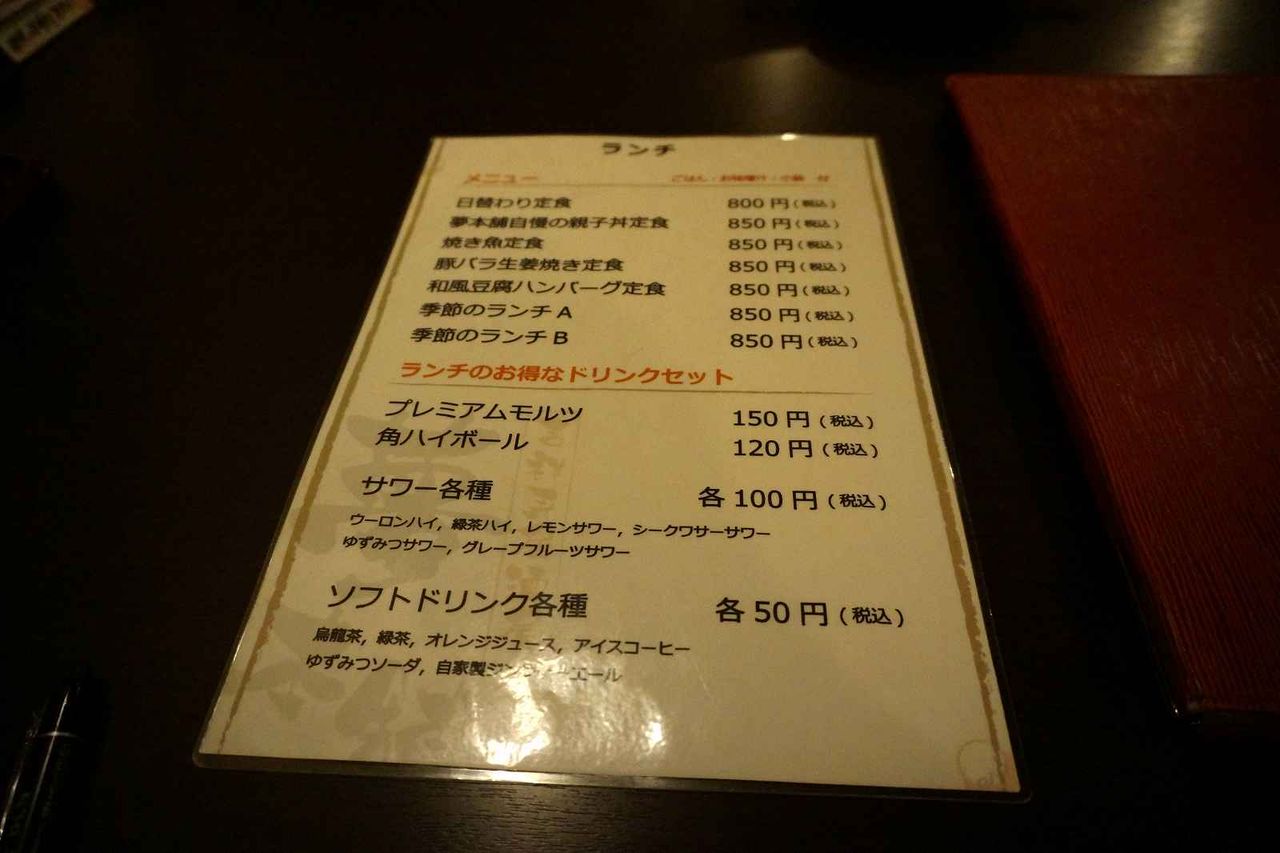 ランチ
メニュー ごはん・お味噌汁・小鉢 付
日替わり定食 800 円(税込)
夢本舗自慢の親子丼定食 850 円(税込)
焼き魚定食 850 円(税込)
豚バラ生姜焼き定食 850 円(税込)
和風豆腐ハンバーグ定食 850 円(税込)
季節のランチ A 850 円(税込)
季節のランチ B 850 円(税込)
ランチのお得なドリンクセット
プレミアムモルツ 150 円(税込)
角ハイボール 120 円(税込)
サワー各種 各 100 円(税込)
ウーロンハイ, 緑茶ハイ, レモンサワー, シークワサーサワー
ゆずみつサワー, グレープフルーツサワー
ソフトドリンク各種 各 50 円(税込)
烏龍茶, 緑茶, オレンジジュース, アイスコーヒー
ゆずみつソーダ, 自家製ジンジャーエール